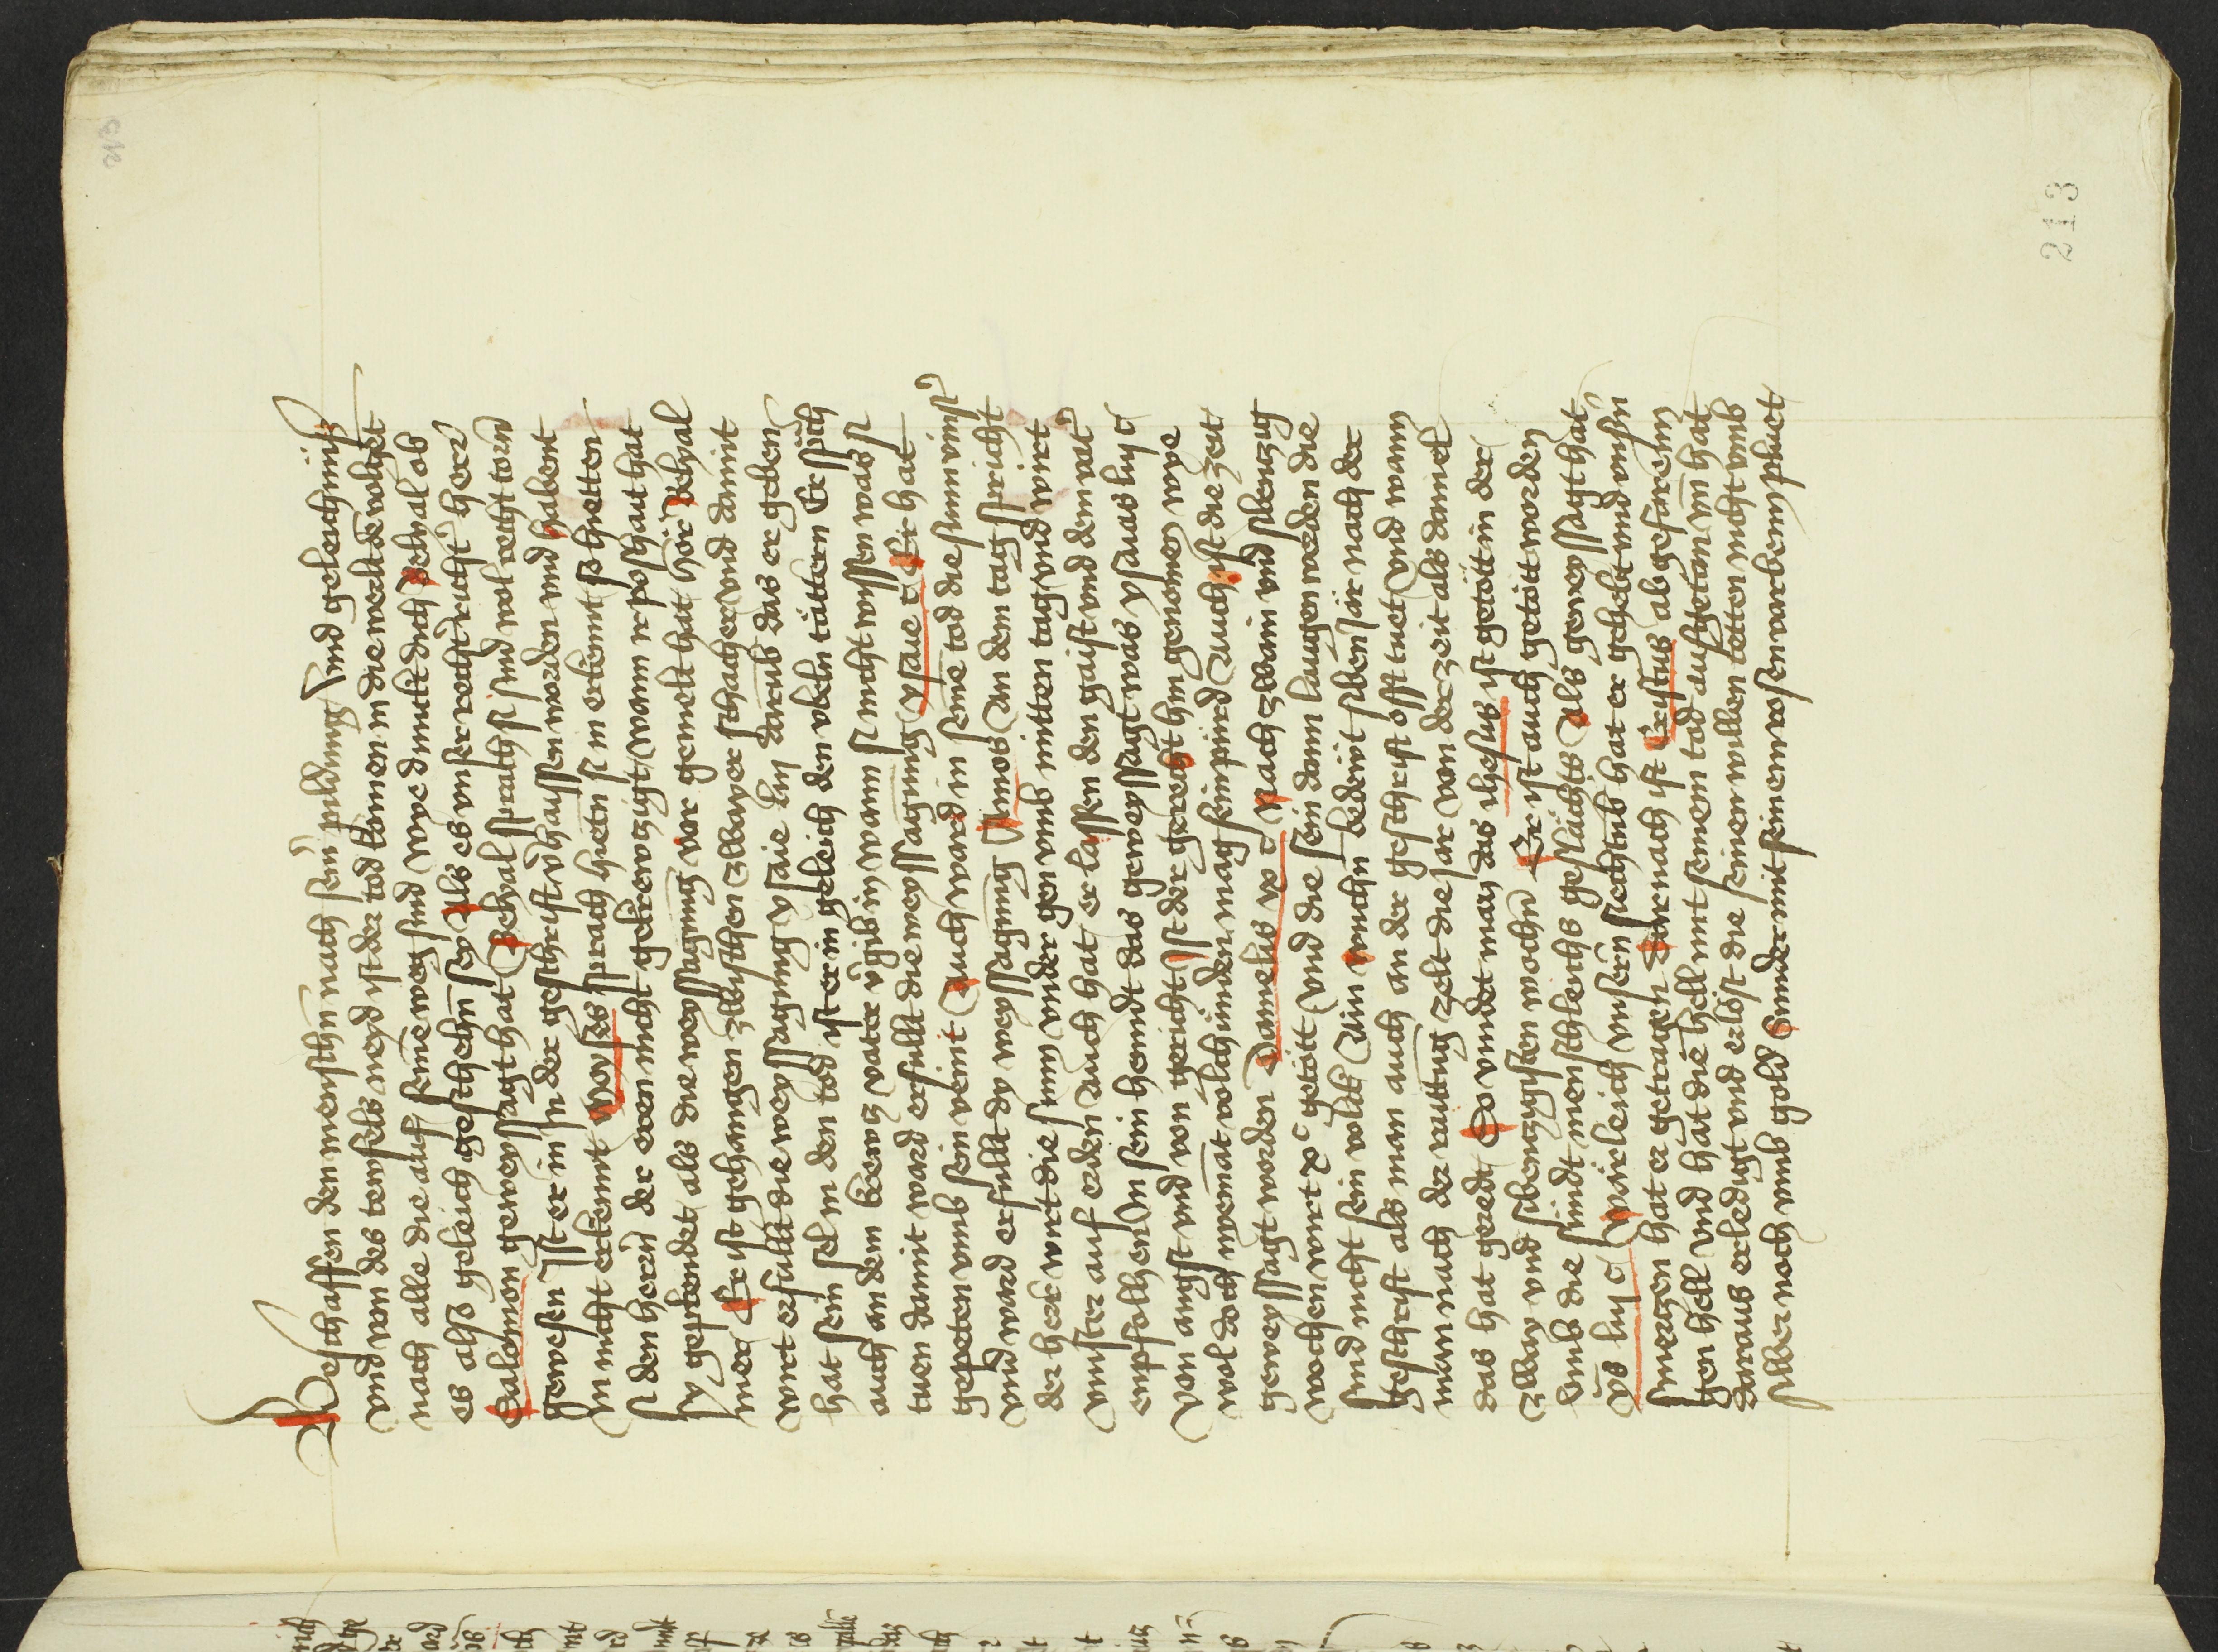 213
Beschaffen den menschñ nach seiñ pildung Vnd geleichnüß
vnd von des tewfels neyd ist der tod komen in die werlt dē volget
nach alle die auff seinē weg sind Wye dunckt dich Belyal ob
es also geleich geschehñ sey Als es vnser recht rucht herr
Salomon geweyssagt hat Belyal sprach si sind wol recht torn
gewesen Ist er in In der geschrift v̄haissen worden vnd habent
In nicht erkennt Moyses sprach hietñ si in erkennt so hietten
si den herñ der eren nicht gekrewtzigt wann ir poshait hat
sy geplendet als die weyssagung vor gemelt hat hör Belyal
mer Er ist gehangen zwischen zwayer schacher vnd damit
wirt erfullt die weyssagung ysaie liij darūb das er geben
hat sein sel in den tod ist er in geleich den vbeln tättern Er spch
auch an dem krewtz vatter v̄gib in wann si nicht wyssen was si
tuen damit ward erfullt die weyssagung ysaie c Er hat
gepeten vmb sein veint Auch ward in seinē tod die sunn vinst
vnd ward erfullt dy weyssagung Amos An dem tag spricht
der herr wirt die sunn vnder gen vmb mitten tag vnd wirt
vinster auf erden Auch hat er lassen den gaist vnd dem vat
empfolhen In sein hennt das geweyssagt was ysaias liij c
von angst vnd von gericht Ist der gerecht hin genomen wye
wol doch nyemāt volchünden mag sein pürd Auch ist die zeit
geweyssagt worden Danielis ix c Nach zwain vnd sibenzig
wochen wirt xc getött vnd die sein dann laugen werden die
sind nicht sein volck Ain wochñ bedewt siben iar nach der
geschrift als man auch an der geschrift offt tuet vnd wann
man nach der raittūg zelt die iar von der zeit als daniel
das hat geredt So vindet man das ihesus ist getött in der
zway vnd sibenzigisten wochñ Er ist auch getött worden
vmb die sündt menschleichs geslächts Als geweyssagt hat
ys liij c Wärleich vnserñ siechtūb hat er gehebt vnd vnsñ
smerzen hat er getragen Darnach ist Cristus abgefaren in
gen hell vnd hat die hell mit seinem tod aufgetan vm̄ hat
daraus erledigt vnd erlöst die seinen willen tetten nicht vmb
silber noch vmb gold Sunder mit seinem rosenvarbenn pluet